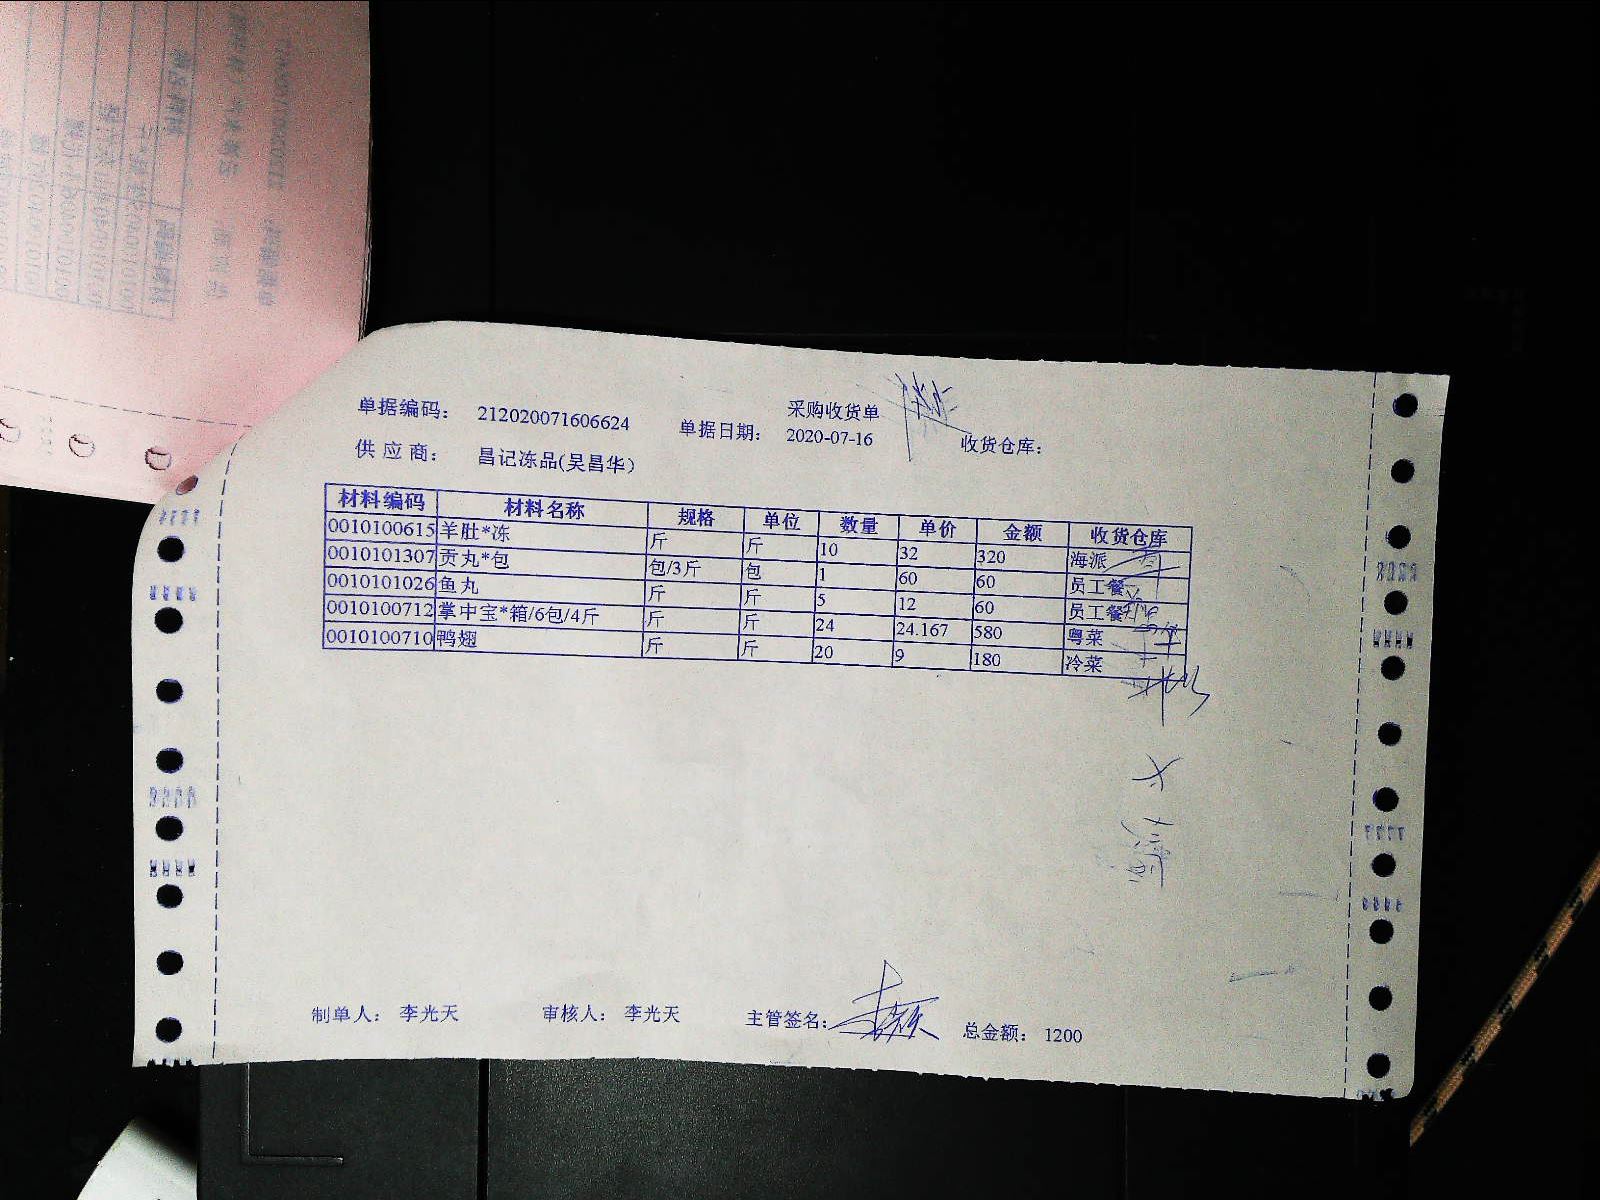 采购收货单
单据编码： 212020071606624 单据日期： 2020-07-16 收货仓库：
供应商： 昌记冻品(吴昌华)
材料编码 材料名称 规格 单位 数量 单价 金额 收货仓库
0010100615 羊肚*冻 斤 斤 10 32 320 海派
0010101307 贡丸*包 包/3斤 包 1 60 60 员工餐
0010101026 鱼丸 斤 斤 5 12 60 员工餐
0010100712 掌中宝*箱/6包/4斤 斤 斤 24 24.167 580 粤菜
0010100710 鸭翅 斤 斤 20 9 180 冷菜
制单人： 李光天 审核人： 李光天 主管签名： 总金额： 1200